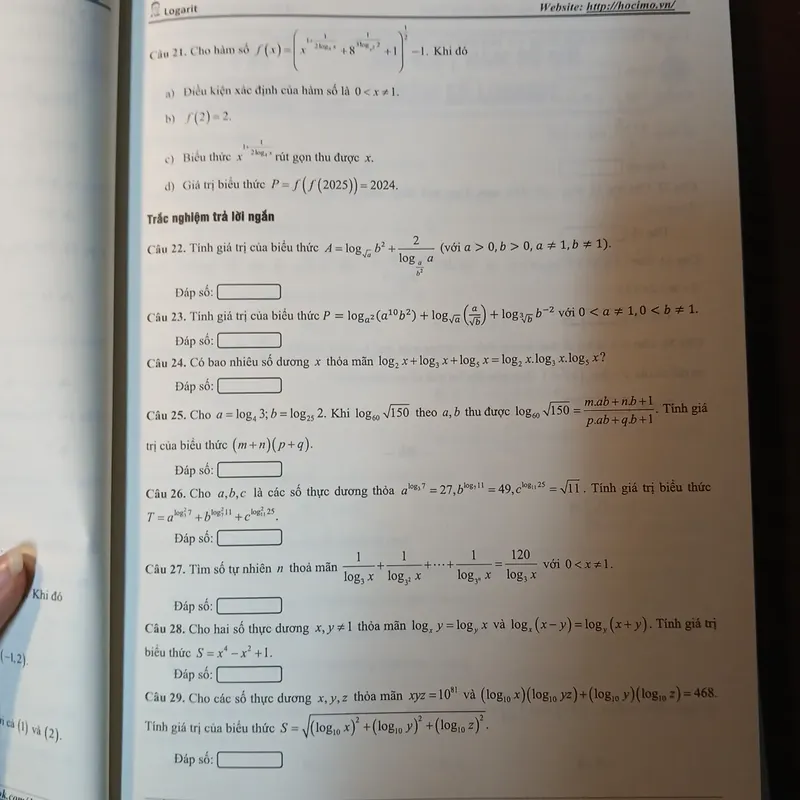 Logarit
Website: http://hocimo.vn/
Câu 21. Cho hàm số f(x) = (x^{1+\frac{1}{2\log_4 x}} + 8^{\frac{1}{3\log_{x^2} 2}} + 1)^{\frac{1}{2}} − 1. Khi đó
a) Điều kiện xác định của hàm số là 0 < x ≠ 1.
b) f(2) = 2.
c) Biểu thức x^{1+\frac{1}{2\log_4 x}} rút gọn thu được x.
d) Giá trị biểu thức P = f(f(2025)) = 2024.
Trắc nghiệm trả lời ngắn
Câu 22. Tính giá trị của biểu thức A = log_{√a} b² + \frac{2}{\log_{\frac{a}{b^2}} a} (với a > 0, b > 0, a ≠ 1, b ≠ 1).
Đáp số:
Câu 23. Tính giá trị của biểu thức P = log_{a²}(a¹⁰b²) + log_{√a}(\frac{a}{√b}) + log_{∛b} b⁻² với 0 < a ≠ 1, 0 < b ≠ 1.
Đáp số:
Câu 24. Có bao nhiêu số dương x thỏa mãn log₂ x + log₃ x + log₅ x = log₂ x.log₃ x.log₅ x?
Đáp số:
Câu 25. Cho a = log₄ 3; b = log₂₅ 2. Khi log₆₀ √150 theo a, b thu được log₆₀ √150 = \frac{m.ab + n.b + 1}{p.ab + q.b + 1}. Tính giá
trị của biểu thức (m + n)(p + q).
Đáp số:
Câu 26. Cho a, b, c là các số thực dương thỏa a^{log₃ 7} = 27, b^{log₇ 11} = 49, c^{log₁₁ 25} = √11. Tính giá trị biểu thức
T = a^{log₃² 7} + b^{log₇² 11} + c^{log₁₁² 25}.
Đáp số:
Câu 27. Tìm số tự nhiên n thoả mãn \frac{1}{\log_3 x} + \frac{1}{\log_{3^2} x} + ⋯ + \frac{1}{\log_{3^n} x} = \frac{120}{\log_3 x} với 0 < x ≠ 1.
Đáp số:
Câu 28. Cho hai số thực dương x, y ≠ 1 thỏa mãn log_x y = log_y x và log_x(x − y) = log_y(x + y). Tính giá trị
biểu thức S = x⁴ − x² + 1.
Đáp số:
Câu 29. Cho các số thực dương x, y, z thỏa mãn xyz = 10⁸¹ và (log₁₀ x)(log₁₀ yz) + (log₁₀ y)(log₁₀ z) = 468.
Tính giá trị của biểu thức S = √((log₁₀ x)² + (log₁₀ y)² + (log₁₀ z)²).
Đáp số:
Khi đó
(−1,2).
(1) và (2).